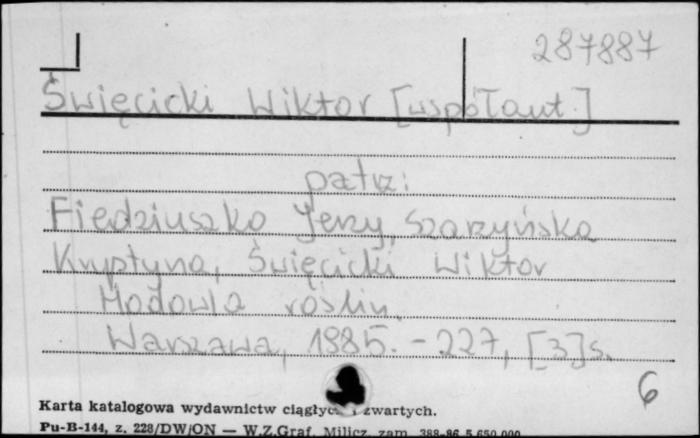 287887
Święcicki Wiktor [współaut.]
patrz:
Fiedziuszko Jerzy, Szarzyńska
Krystyna, Święcicki Wiktor
Hodowla roślin.
Warszawa, 1985. - 227, [3]s.
6
Karta katalogowa wydawnictw ciągłych i zwartych.
Pu-B-144, z. 228/DW/ON — W.Z.Graf. Milicz, zam. 388-86 5.650.000